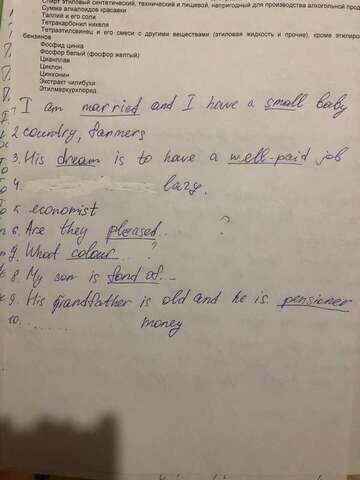 Спирт этиловый синтетический, технический и пищевой, непригодный для производства алкогольной
Сумма алкалоидов красавки
Таллий и его соли
Тетракарбонил никеля
Тетраэтилсвинец и его смеси с другими веществами (этиловая жидкость и прочие), кроме
бензинов
Фосфид цинка
Фосфор белый (фосфор желтый)
Цианплав
Циклон
Цинхонин
Экстракт чилибухи
Этилмеркурхлорид
1. I am married and I have a small baby
2 country, farmers
3. His dream is to have a well-paid job
4. lazy.
5. economist
6. Are they pleased... ?
9. What colour... ?
8. My son is fond of...
9. His grandfather is old and he is pensioner
10. ....... money